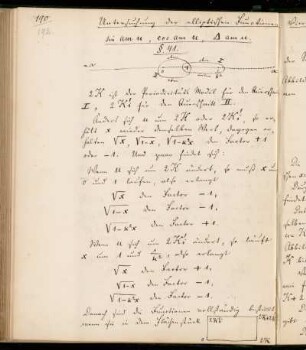 190.
192.
Untersuchung der elliptischen Functionen
sin am u, cos am u, Δ am u.
§. 41.
2K ist der Periodicitäts Modul für den Querschnitt
I, 2K'i für den Querschnitt II.
Ändert sich u um 2K oder 2K'i, so er-
hält x wieder denselben Werth, dagegen er-
halten √x, √1-x, √1-k²x den Factor +1
oder -1. Und zwar findet sich:
Wenn u sich um 2K ändert, so muß x um
0 und 1 laufen, also erlangt
√x den Factor -1,
√1-x den Factor -1,
√1-k²x den Factor +1.
Wenn u sich um 2K'i ändert, so läuft
x um 1 und 1/k², also erlangt
√x den Factor +1,
√1-x den Factor -1,
√1-k²x den Factor -1.
Darnach sind die Functionen vollständig bestimmt
wenn sie in dem Flächenstück